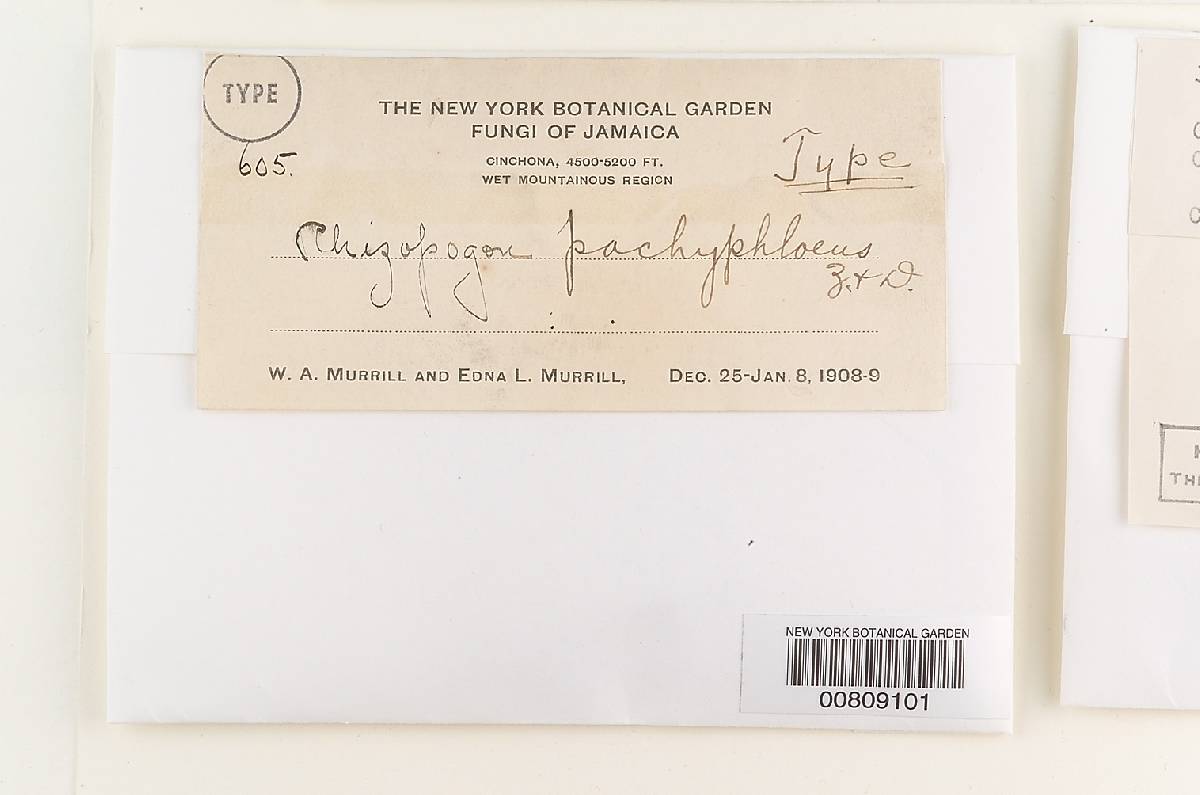 TYPE
THE NEW YORK BOTANICAL GARDEN
FUNGI OF JAMAICA
605.
CINCHONA, 4500-5200 FT.
WET MOUNTAINOUS REGION
Type
Rhizopogon pachyphloeus
Z. & D.
W. A. MURRILL AND EDNA L. MURRILL, DEC. 25-JAN. 8, 1908-9
NEW YORK BOTANICAL GARDEN
00809101